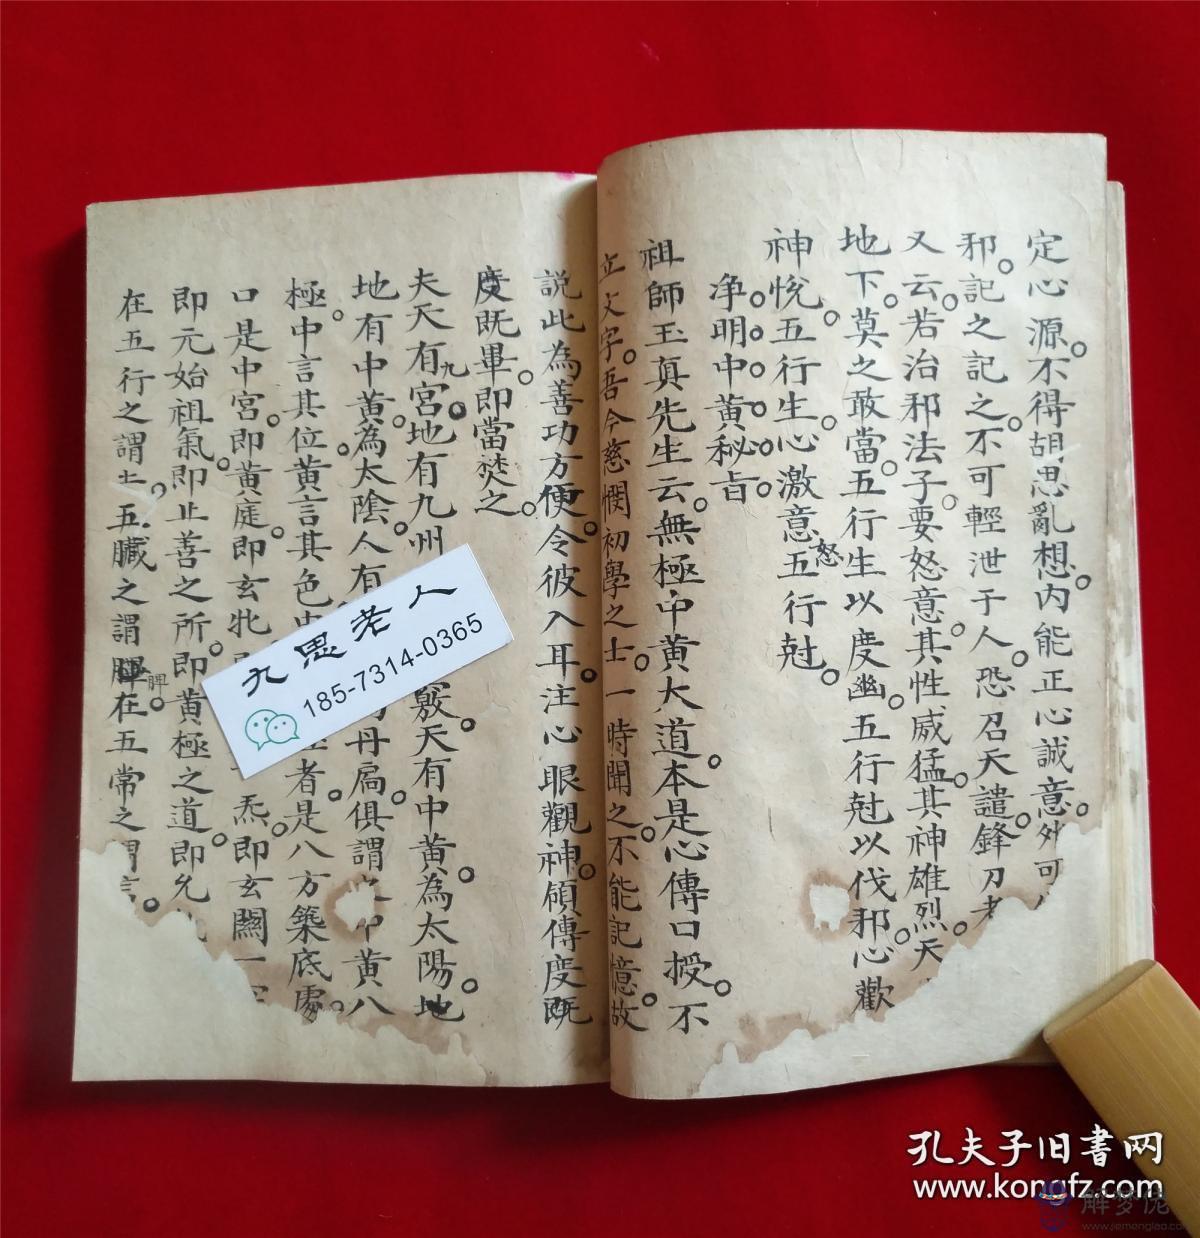 定心源。不得胡思亂想。内能正心誠意。外可
邪。記之記之。不可輕泄于人。恐召天譴。鋒刀
又云。若治邪法子。要怒意。其性威猛。其神雄烈。天
地下。莫之敢當。五行生以度幽。五行尅以伐邪。心歡
神悅。五行生。心激意怒五行尅。
淨。明。中。黄。秘。旨。
祖師玉真先生云。無極中黄大道。本是心傳口授。不
立文字。吾今慈憫初學之士。一時聞之。不能記憶。故
説此為善功方便。令彼入耳。注心眼觀神領傳度既
度既畢。即當焚之。
夫天有九宮。地有九州
竅。天有中黄。為太陽。地
地有中黄。為太陰。人有
丹扃。俱謂
中黄八
極。中言其位。黄言其色。
者。是八方築底處。
口是中宮。即黄庭。即玄牝
炁。即玄關一
即元始祖氣。即止善之所。即黄極之道。即
在五行之謂土。五臟之謂脾。在五常之
九思老人
185-7314-0365
孔夫子旧書网
www.kongfz.com
解梦佬
www.jiemenglao.com